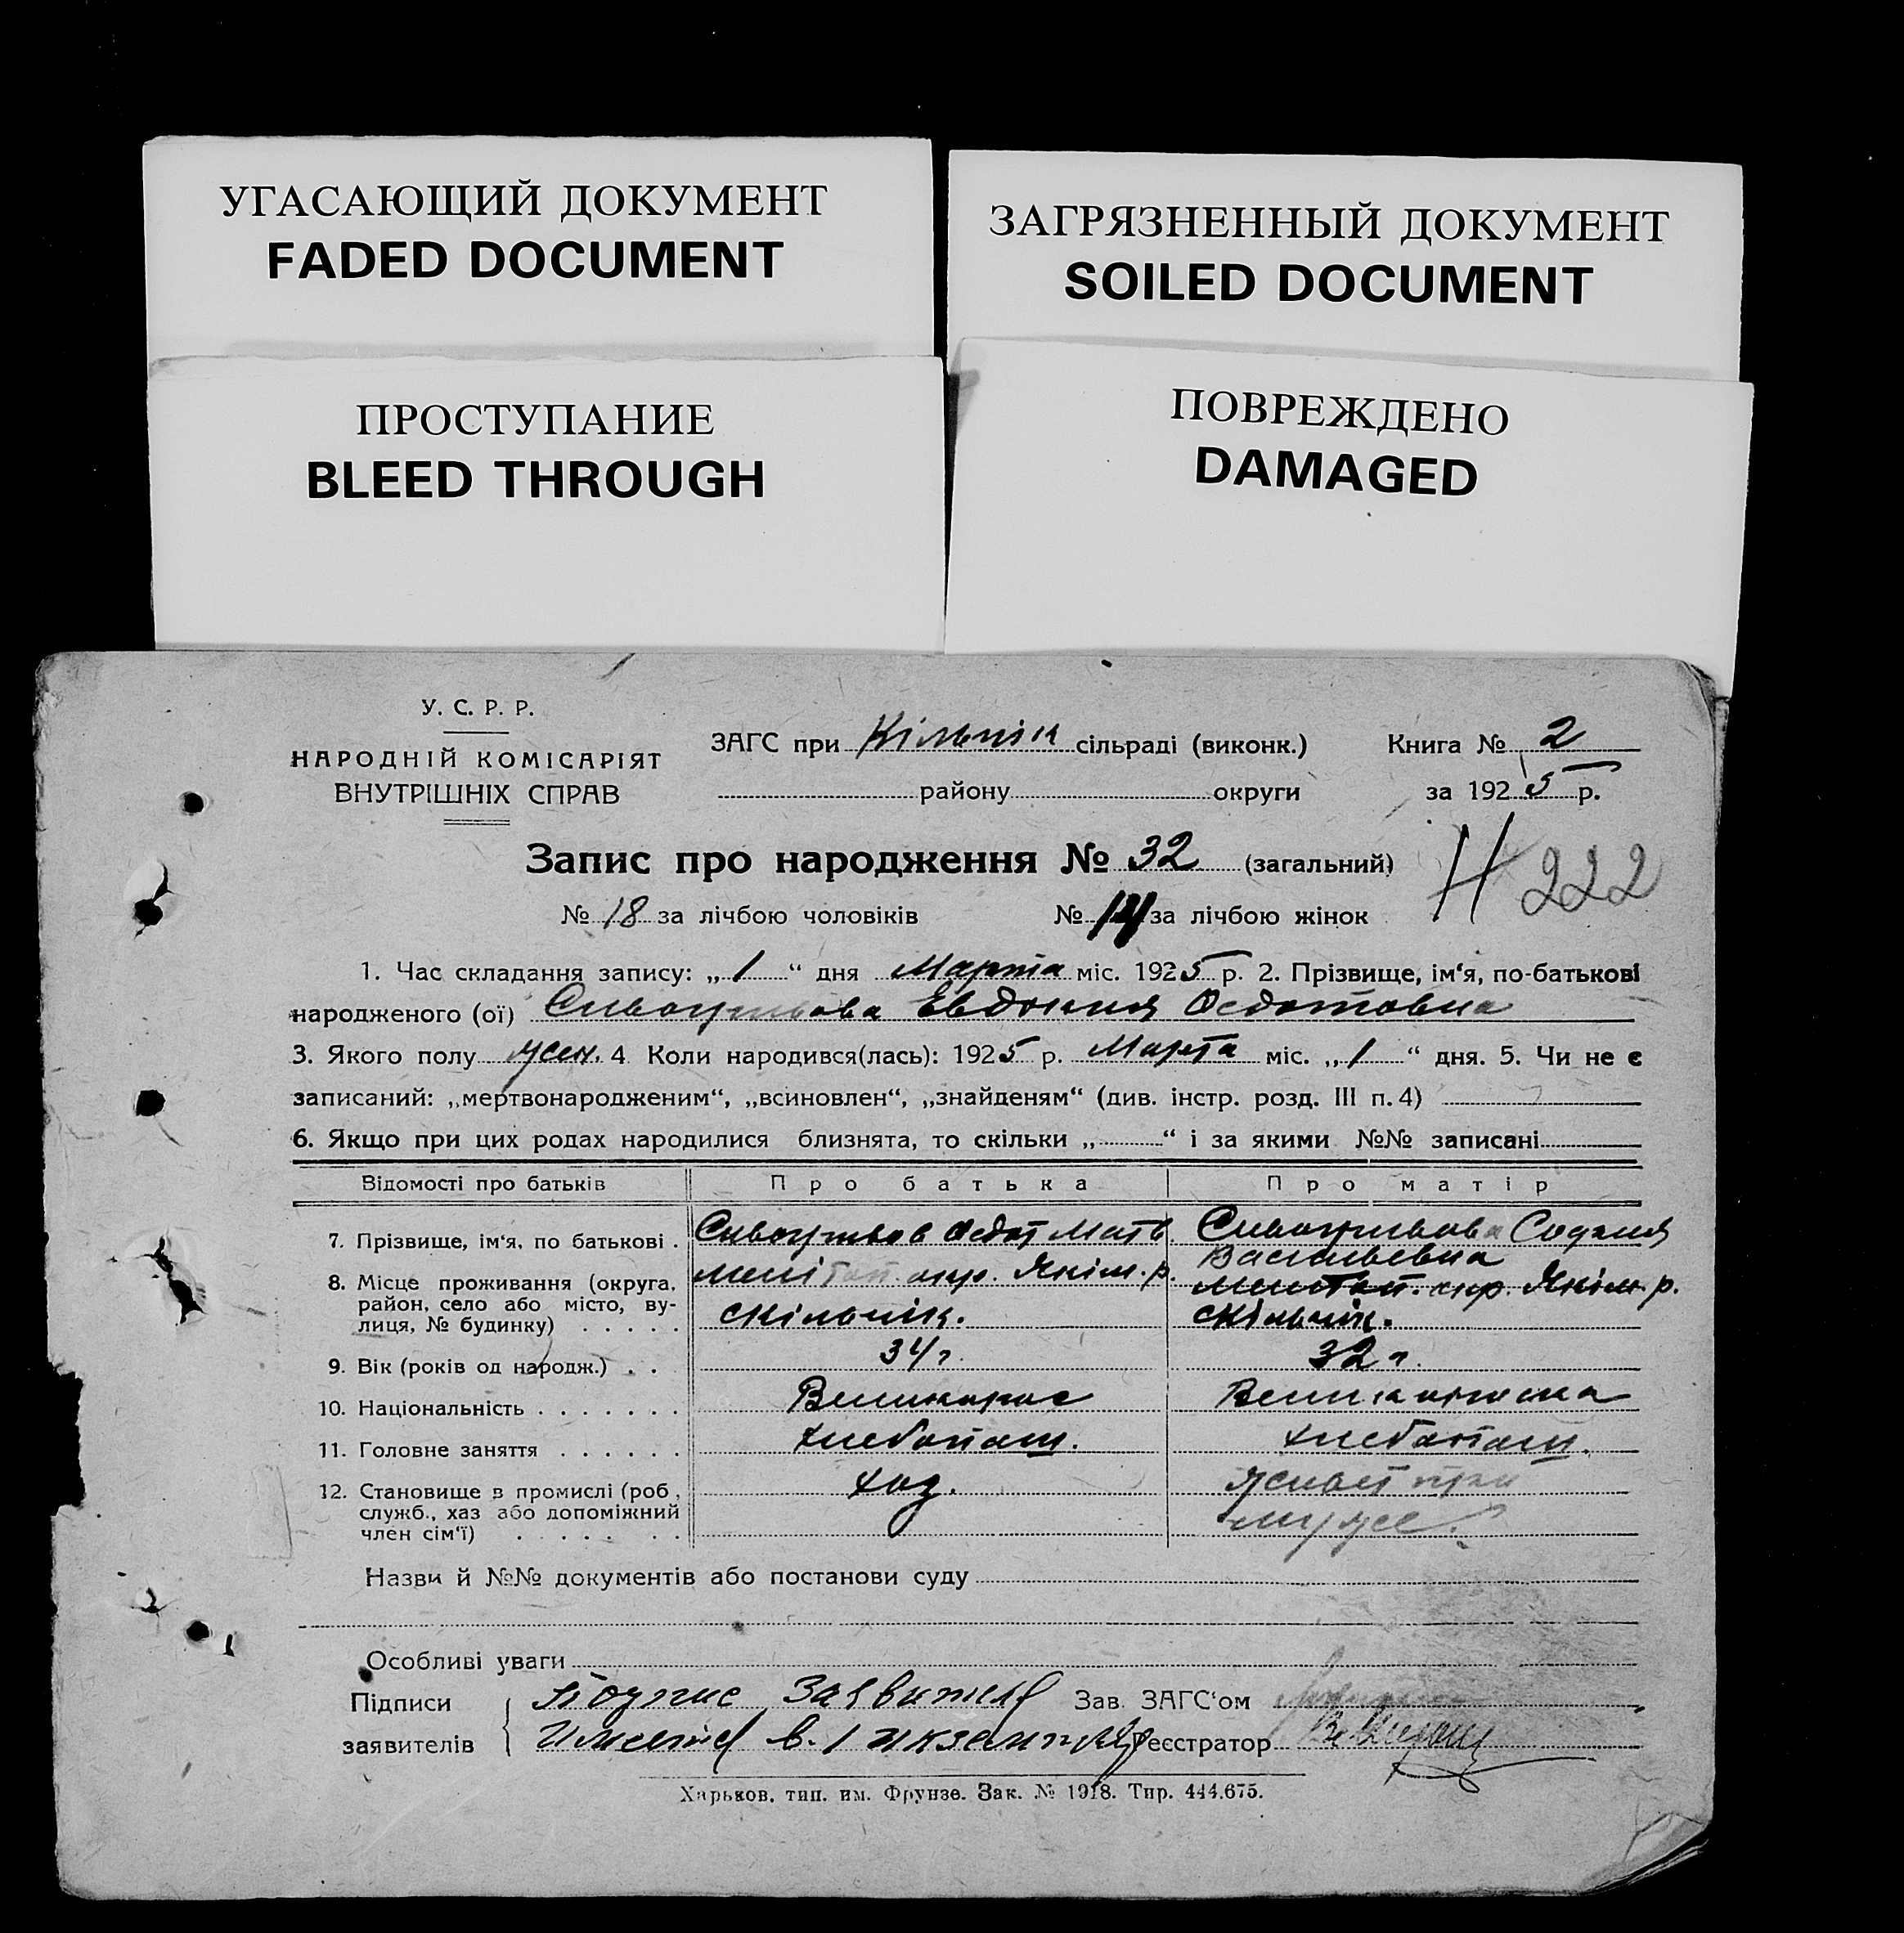 УГАСАЮЩИЙ ДОКУМЕНТ
FADED DOCUMENT
ЗАГРЯЗНЕННЫЙ ДОКУМЕНТ
SOILED DOCUMENT
ПРОСТУПАНИЕ
BLEED THROUGH
ПОВРЕЖДЕНО
DAMAGED
У. С. Р. Р.
НАРОДНІЙ КОМІСАРІЯТ
ВНУТРІШНІХ СПРАВ
ЗАГС при сільраді (виконк.) Книга № 2
району округи за 1925 р.
Запис про народження № 32 (загальний) 222
№ 18 за лічбою чоловіків № 14 за лічбою жінок
1. Час складання запису: „1“ дня Марта міс. 1925 р. 2. Прізвище, ім‘я, по-батькові
народженого (ої) Евдокия Федотовна
3. Якого полу жен. 4 Коли народився(лась): 1925 р. Марта міс. „1“ дня. 5. Чи не є
записаний: „мертвонародженим“, „всиновлен“, „знайденям“ (див. інстр. розд. III п. 4)
6. Якщо при цих родах народилися близнята, то скільки „ “ і за якими №№ записані
Відомості про батьків Про батька Про матір
7. Прізвище, ім‘я, по батькові . Федот Матв София
Васильевна
8. Місце проживання (округа, район, село або місто, вулиця, № будинку) . . . . . Мелітоп. окр. Якім. р. Мелітоп. окр. Якім. р.
9. Вік (років од народж.) . . 34 г. 32 г.
10. Національність . . . . . . . Великорос Великороска
11. Головне заняття . . . . . . хлебопаш. хлебопаш.
12. Становище в промислі (роб, служб., хаз або допоміжний член сім‘ї) хоз. при
муже
Назви й №№ документів або постанови суду
Особливі уваги
Підписи Подпис Заявителя Зав. ЗАГС‘ом
заявителів в 1 Реєстратор
Харьков, тип. им. Фрунзе. Зак. № 1918. Тир. 444.675.